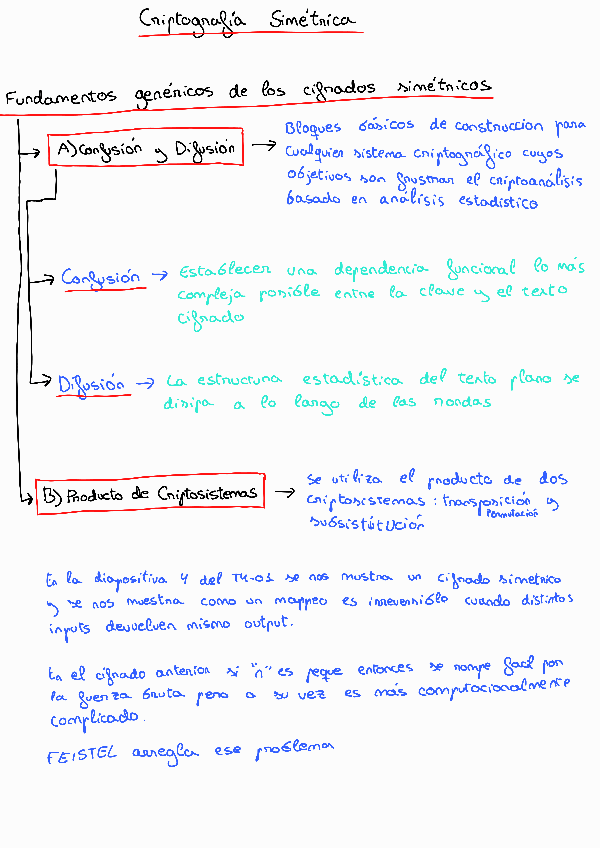 Criptografía Simétrica
Fundamentos genéricos de los cifrados simétricos
A) Confusión y Difusión → Bloques básicos de construccion para
cualquier sistema criptográfico cuyos
objetivos son frustrar el criptoanálisis
basado en análisis estadístico
Confusión → Establecer una dependencia funcional lo más
compleja posible entre la clave y el texto
cifrado
Difusión → La estructura estadística del texto plano se
disipa a lo largo de las rondas
B) Producto de Criptosistemas → se utiliza el producto de dos
criptosistemas: transposición y
Permutación
subsistútución
En la diapositiva 4 del T4-01 se nos mustra un cifrado simetrico
y se nos muestra como un mappeo es irreversible cuando distintos
inputs devuelven mismo output.
En el cifrado anterior si "n" es peque entonces se rompe facil por
la fuerza bruta pero a su vez es más computacionalmente
complicado.
FEISTEL arregla ese problema